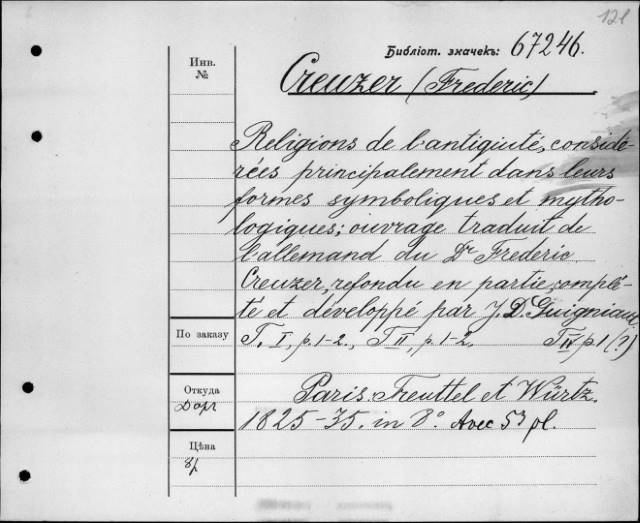 121
Библіот. значекъ: 67246.
Инв.
№
Creuzer (Frederic)
Religions de l'antiquité, considé-
rées principalement dans leurs
formes symboliques et mytho-
logiques; ouvrage traduit de
l'allemand du Dr Frederic
Creuzer, refondu en partie, complé-
té et développé par J. D. Guigniaut
По заказу
T. I, p. 1-2., T II, p. 1-2. T IV p 1 (?)
Откуда
Paris. Treuttel et Würtz.
1825-35. in 8º. Avec 53 pl.
Цѣна
8р